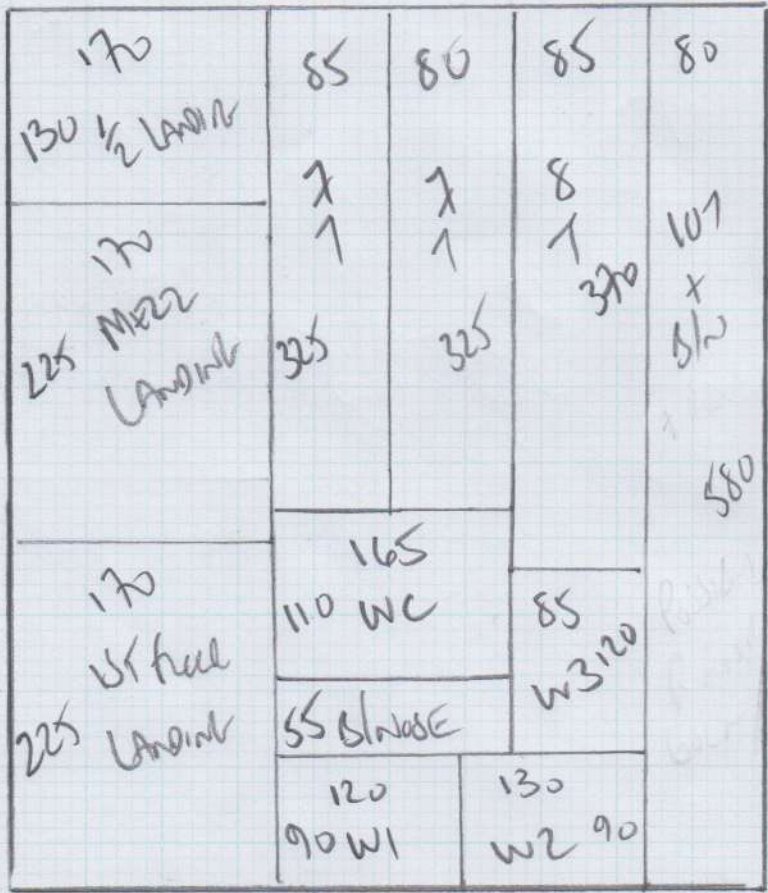 170
130 1/2 LANDING
170
MEZZ
225 LANDING
170
1ST FLOOR
225 LANDING
85
7
1
325
80
7
1
325
85
8
1
370
80
101
+
B/N
580
165
110 WC
55 B/NOSE
85
W3 120
120
90 W1
130
W2 90